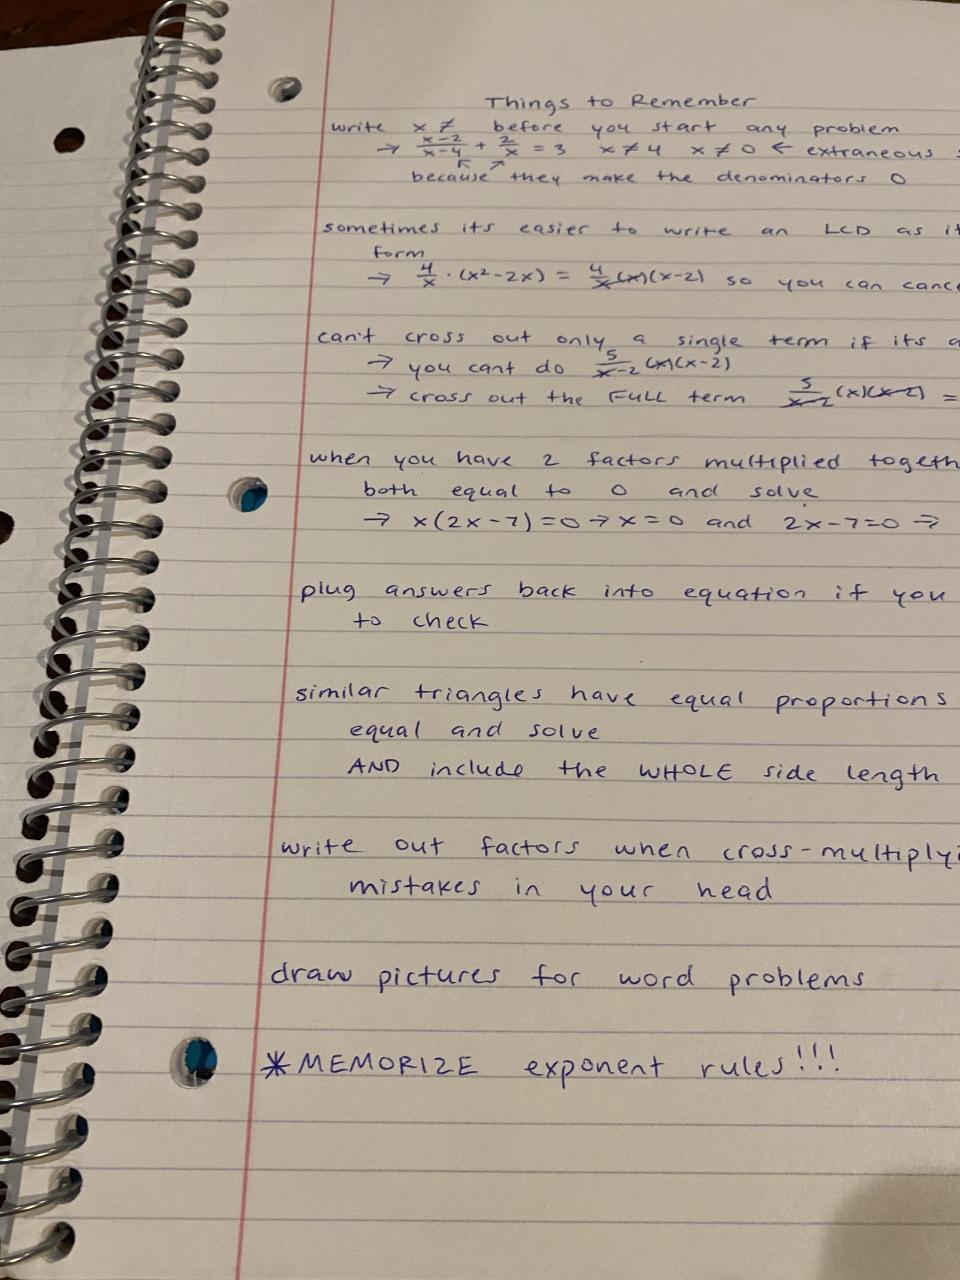 Things to Remember
write x ≠ before you start any problem
→ x-2/x-4 + 2/x = 3 x≠4 x≠0 ← extraneous
because they make the denominators 0
sometimes its easier to write an LCD as
form
→ 4/x · (x²-2x) = 4/x (x)(x-2) so you can
can't cross out only a single term if its
→ you cant do 5/x-2 (x)(x-2)
→ cross out the FULL term 5/x-2 (x)(x-2) =
when you have 2 factors multiplied togeth
both equal to 0 and solve
→ x(2x-7)=0 → x=0 and 2x-7=0 →
plug answers back into equation if you
to check
similar triangles have equal proportions
equal and solve
AND include the WHOLE side length
write out factors when cross-multiplyi
mistakes in your head
draw pictures for word problems
*MEMORIZE exponent rules!!!